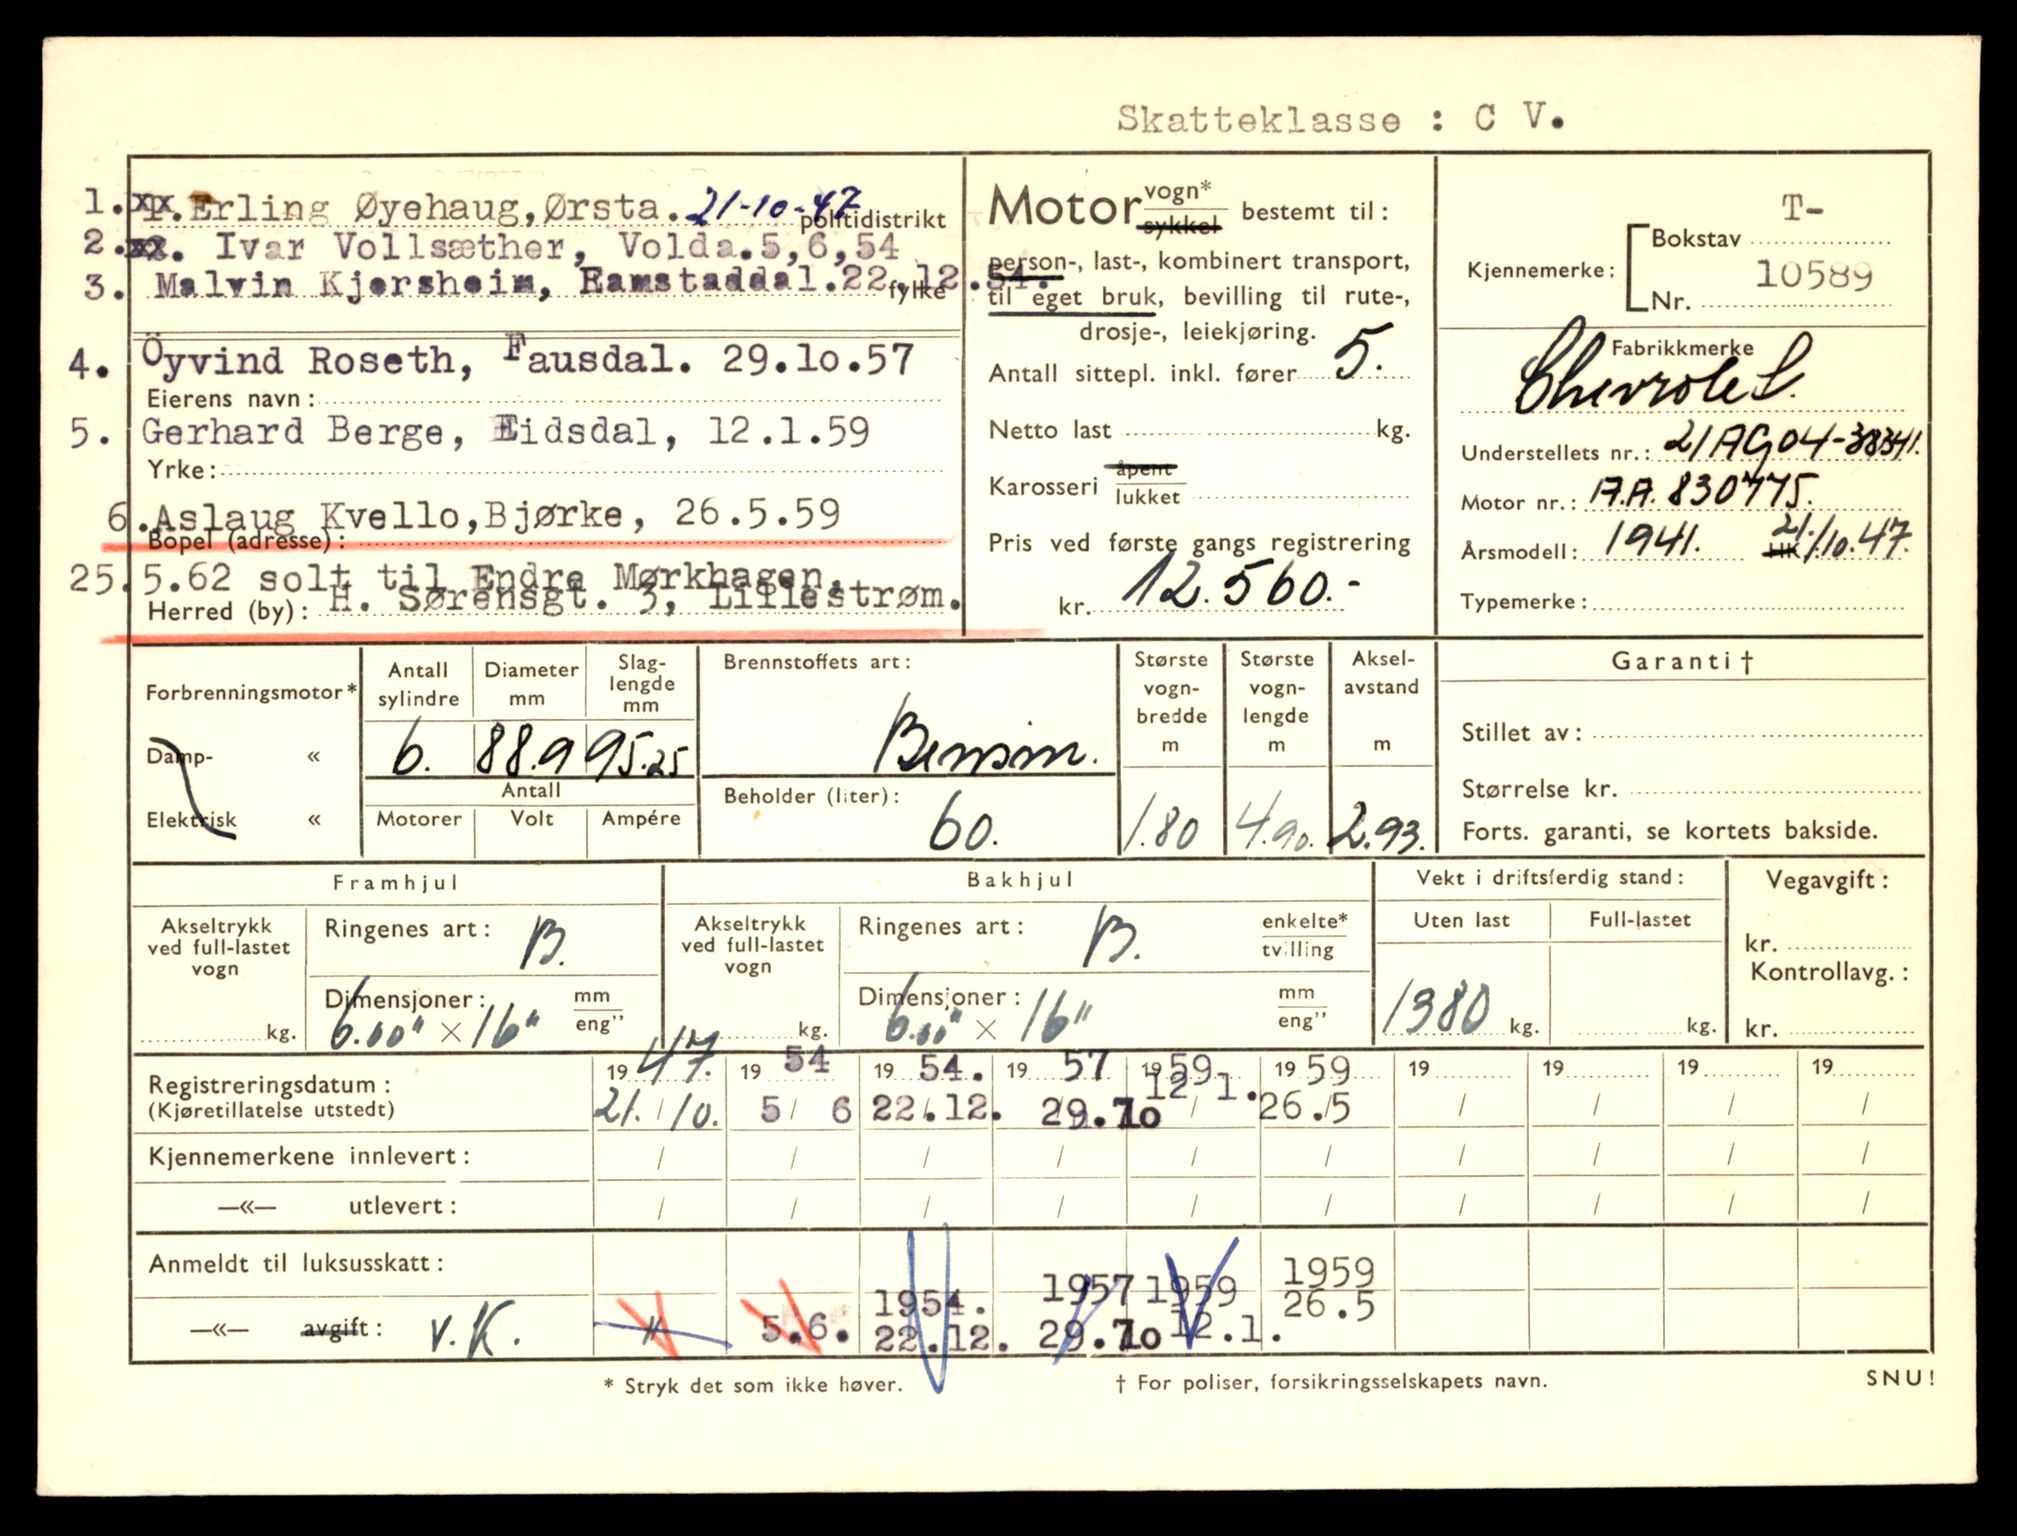 Skatteklasse : C V.
1. Erling Øyehaug, Ørsta. 21-10-47 politidistrikt
2. Ivar Vollsæther, Volda. 5,6,54
3. Malvin Kjersheim, Ramstaddal. 22.12.54. fylke
4. Öyvind Roseth, Fausdal. 29.10.57
Eierens navn :
5. Gerhard Berge, Eidsdal, 12.1.59
Yrke :
6. Aslaug Kvello, Bjørke, 26.5.59
Bopel (adresse) :
25.5.62 solt til Endre Mørkhagen,
Herred (by) : H. Sørensgt. 3, Lillestrøm.
Motor vogn* sykkel bestemt til :
person-, last-, kombinert transport,
til eget bruk, bevilling til rute-,
drosje-, leiekjøring.
Antall sittepl. inkl. fører 5.
Netto last kg.
Karosseri åpent lukket
Pris ved første gangs registrering
kr. 12.560.-
T-
Kjennemerke : Bokstav
10589
Nr.
Fabrikkmerke
Chevrolet.
Understellets nr. : 21AG04-38341.
Motor nr. : A.A. 830775.
Årsmodell : 1941. 21./10.47.
Typemerke :
Forbrenningsmotor*
Damp- «
Elektrisk «
Antall sylindre
6.
Diameter mm
88.9
Slag-lengde mm
95.25
Antall
Motorer Volt Ampére
Brennstoffets art :
Bensin.
Beholder (liter) :
60.
Største vogn-bredde m
1.80
Største vogn-lengde m
4.90.
Aksel-avstand m
2.93.
Garanti †
Stillet av :
Størrelse kr.
Forts. garanti, se kortets bakside.
Framhjul
Akseltrykk ved full-lastet vogn
kg.
Ringenes art : B.
Dimensjoner : mm eng"
6.00" × 16"
Bakhjul
Akseltrykk ved full-lastet vogn
kg.
Ringenes art : B. enkelte* tvilling
Dimensjoner : mm eng"
6.00" × 16"
Vekt i driftsferdig stand :
Uten last Full-lastet
1380 kg. kg.
Vegavgift :
kr.
Kontrollavg. :
kr.
Registreringsdatum : 19 47. 19 54 19 54. 19 57 19 59 19 59 19 19 19 19
(Kjøretillatelse utstedt) 21./10. 5/ 6 22.12. 29.10 12 1. / 26./5 / / / /
Kjennemerkene innlevert : / / / / / / / / / /
—«— utlevert : / / / / / / / / / /
Anmeldt til luksusskatt : 1954. 1957 1959 1959
—«— avgift : V.K. 5.6. 22.12. 29.10 12.1. 26.5
* Stryk det som ikke høver.
† For poliser, forsikringsselskapets navn.
SNU!